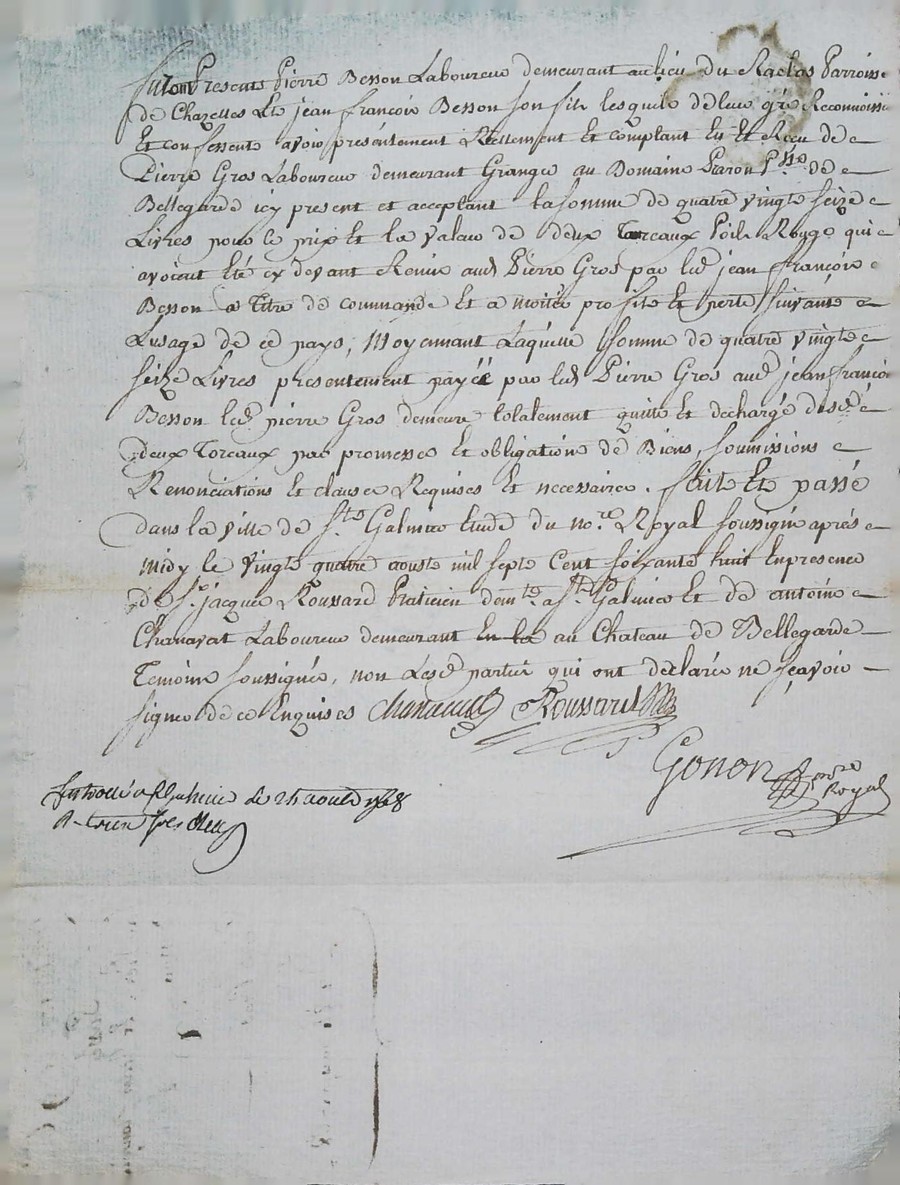 furent Presents Pierre Besson Laboureur demeurant au lieu du Raclas Parroisse
de Chazelles Et jean françois Besson son fils lesquels de leur gré Reconnoissent
Et confessent avoir présentement Réellement Et comptant Eu Et Reçu de
Pierre Gros Laboureur demeurant Granger au Domaine Paron Psse de
Bellegarde icy present et acceptant la somme de quatre vingts seize
Livres pour le prix Et la valeur de deux Toreaux Poils Rouge qui
avoient Eté cy devant Remis aud Pierre Gros par led jean françois
Besson a titre de commande Et a moitié profits Et perte suivant
Lusage de ce pays, Moyennant Laquelle somme de quatre vingts
seize Livres presentement payée par led Pierre Gros aud jean françois
Besson led pierre Gros demeure totalement quitte Et dechargé desd
deux Toreaux par promesses Et obligations de Biens, soumissions
Renonciations Et clauses Requises Et necessaires. fait Et passé
dans la ville de St Galmier Etude du nore Royal soussigné aprés
midy le vingt quatre aoust mil sept Cent soixante huit En presence
de Sr jacques Roussard Praticien demt a St Galmier Et de antoine
Chanavat Laboureur demeurant au Chateau de Bellegarde
Temoins soussignés, non Lesd parties qui ont déclaré ne sçavoir
signer de ce Enquises Chanavat Roussard
Gonon nore
Royal
a St galmier le 24 aoust 1768
R